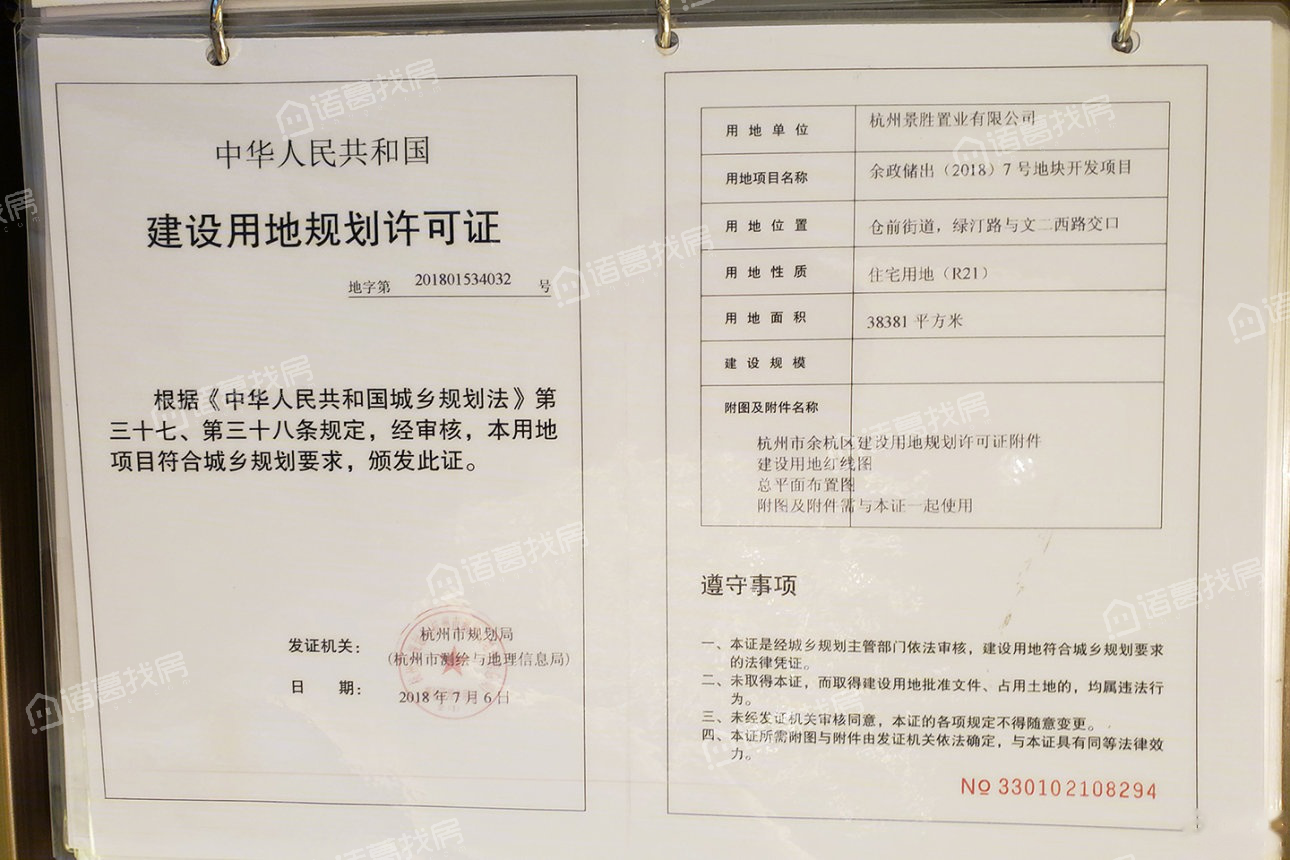 中华人民共和国
建设用地规划许可证
地字第 201801534032 号
根据《中华人民共和国城乡规划法》第
三十七、第三十八条规定，经审核，本用地
项目符合城乡规划要求，颁发此证。
发证机关：
杭州市规划局
（杭州市测绘与地理信息局）
日 期： 2018年7月6日
用地单位 杭州景胜置业有限公司
用地项目名称 余政储出（2018）7号地块开发项目
用地位置 仓前街道，绿汀路与文二西路交口
用地性质 住宅用地（R21）
用地面积 38381平方米
建设规模
附图及附件名称
杭州市余杭区建设用地规划许可证附件
建设用地红线图
总平面布置图
附图及附件需与本证一起使用
遵守事项
一、本证是经城乡规划主管部门依法审核，建设用地符合城乡规划要求
的法律凭证。
二、未取得本证，而取得建设用地批准文件、占用土地的，均属违法行
为。
三、未经发证机关审核同意，本证的各项规定不得随意变更。
四、本证所需附图与附件由发证机关依法确定，与本证具有同等法律效
力。
No 330102108294
诸葛找房
诸葛找房
诸葛找房
诸葛找房
诸葛找房
诸葛找房
诸葛找房
诸葛找房